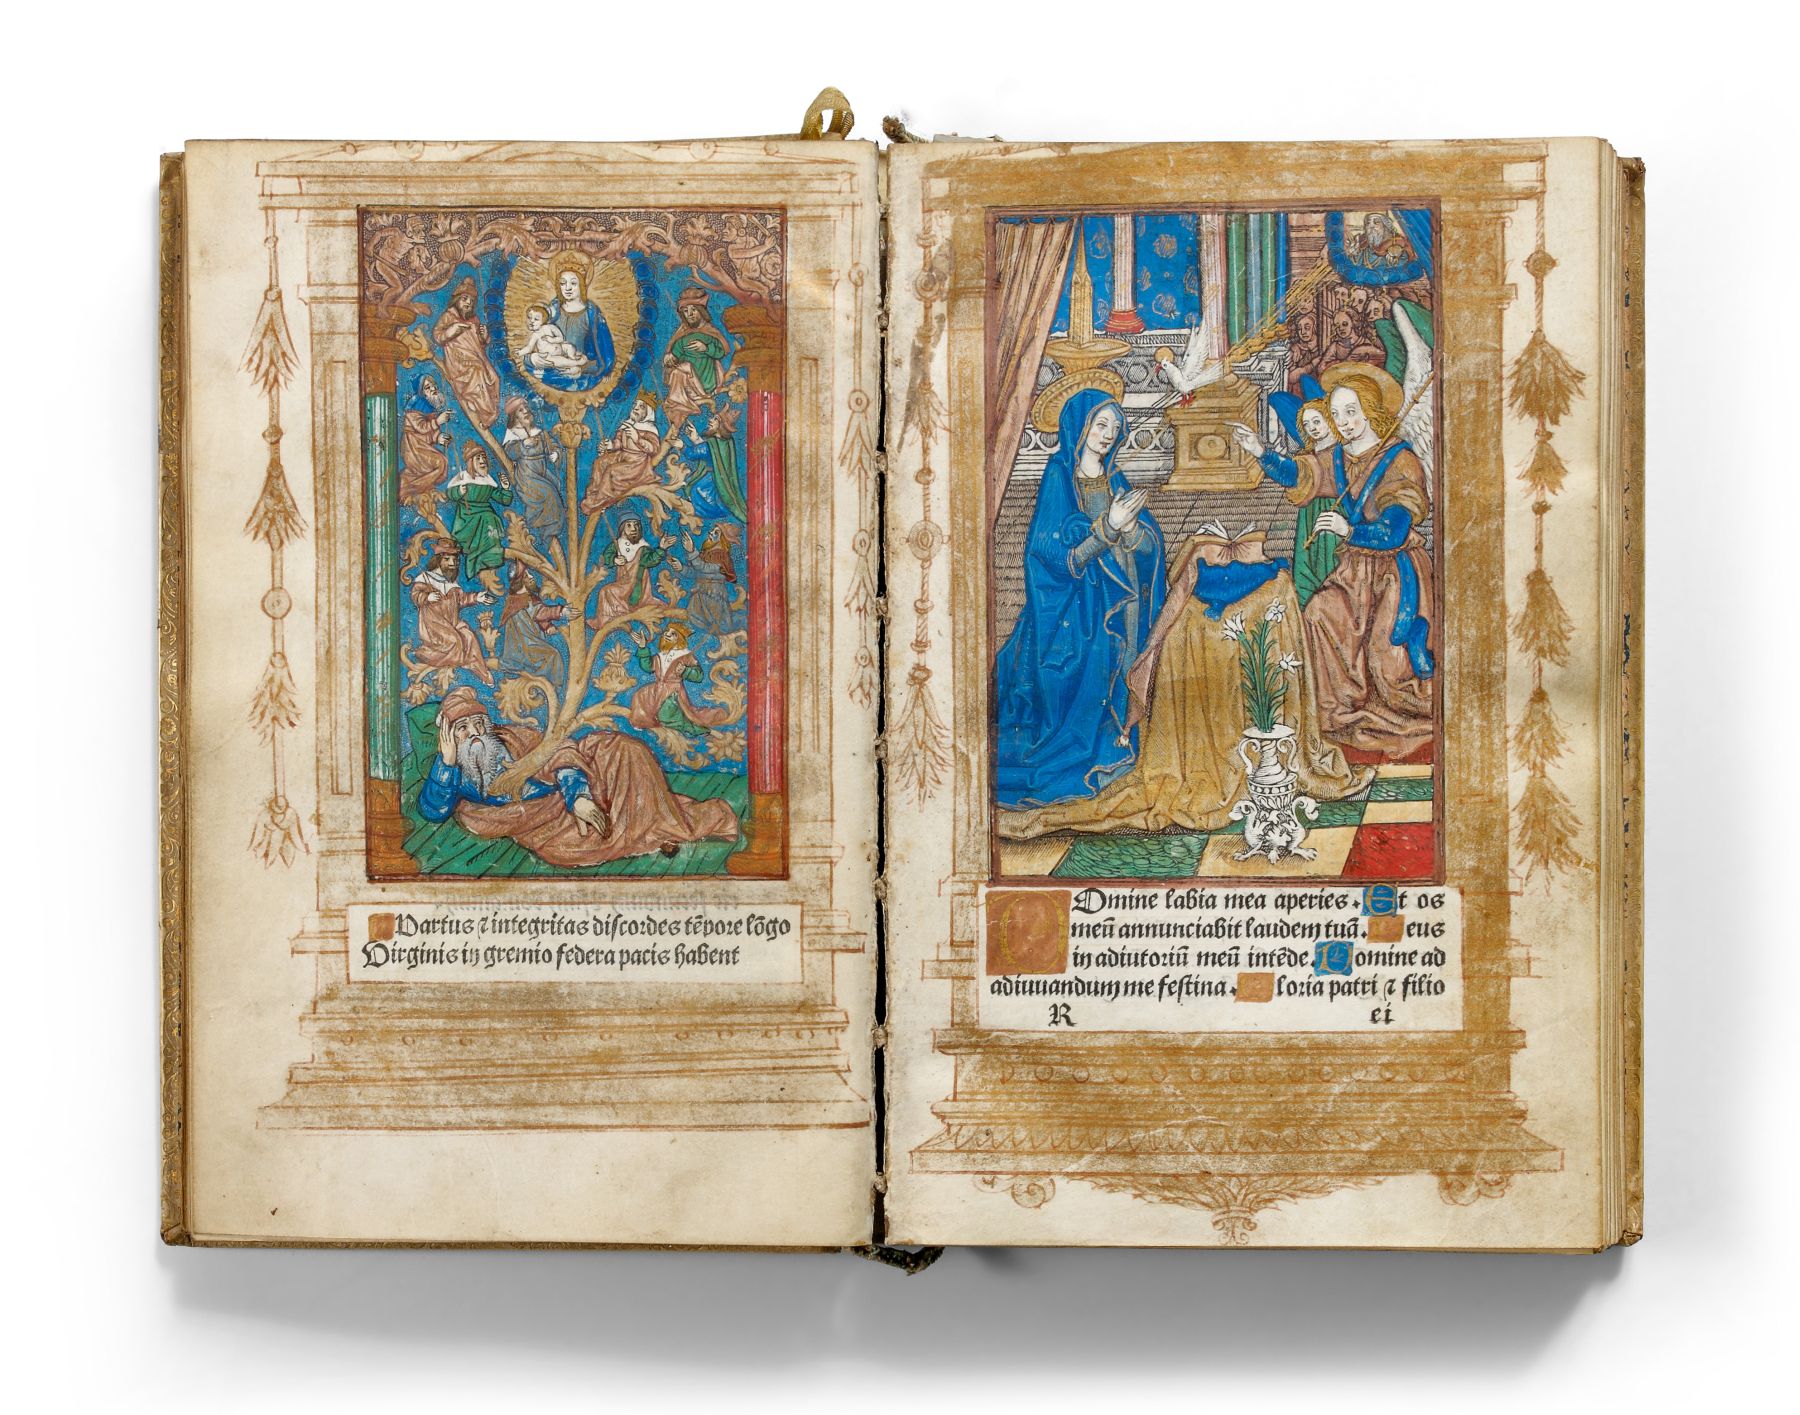 Partus ⁊ integritas discordes tẽpore lõgo
Virginis in gremio federa pacis habent
Domine labia mea aperies. Et os
meũ annunciabit laudem tuã. Deus
in adiutoriũ meũ intẽde. Domine ad
adiuuandum me festina. Gloria patri ⁊ filio
R ei